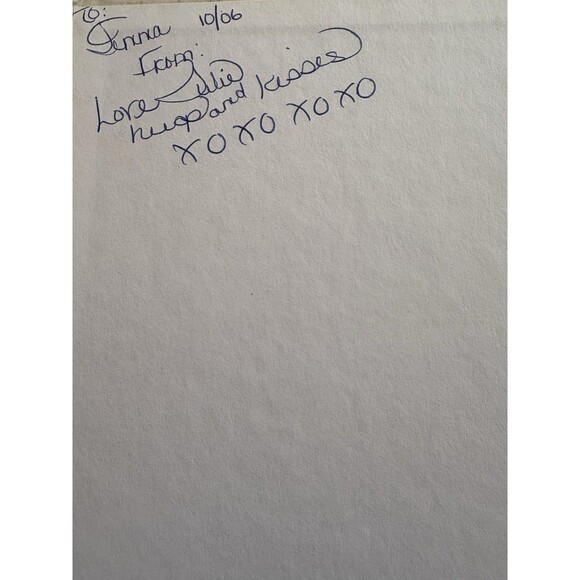 To:
Jenna 10/06
From:
Love Julie
hugs and kisses
XO XO XO XO